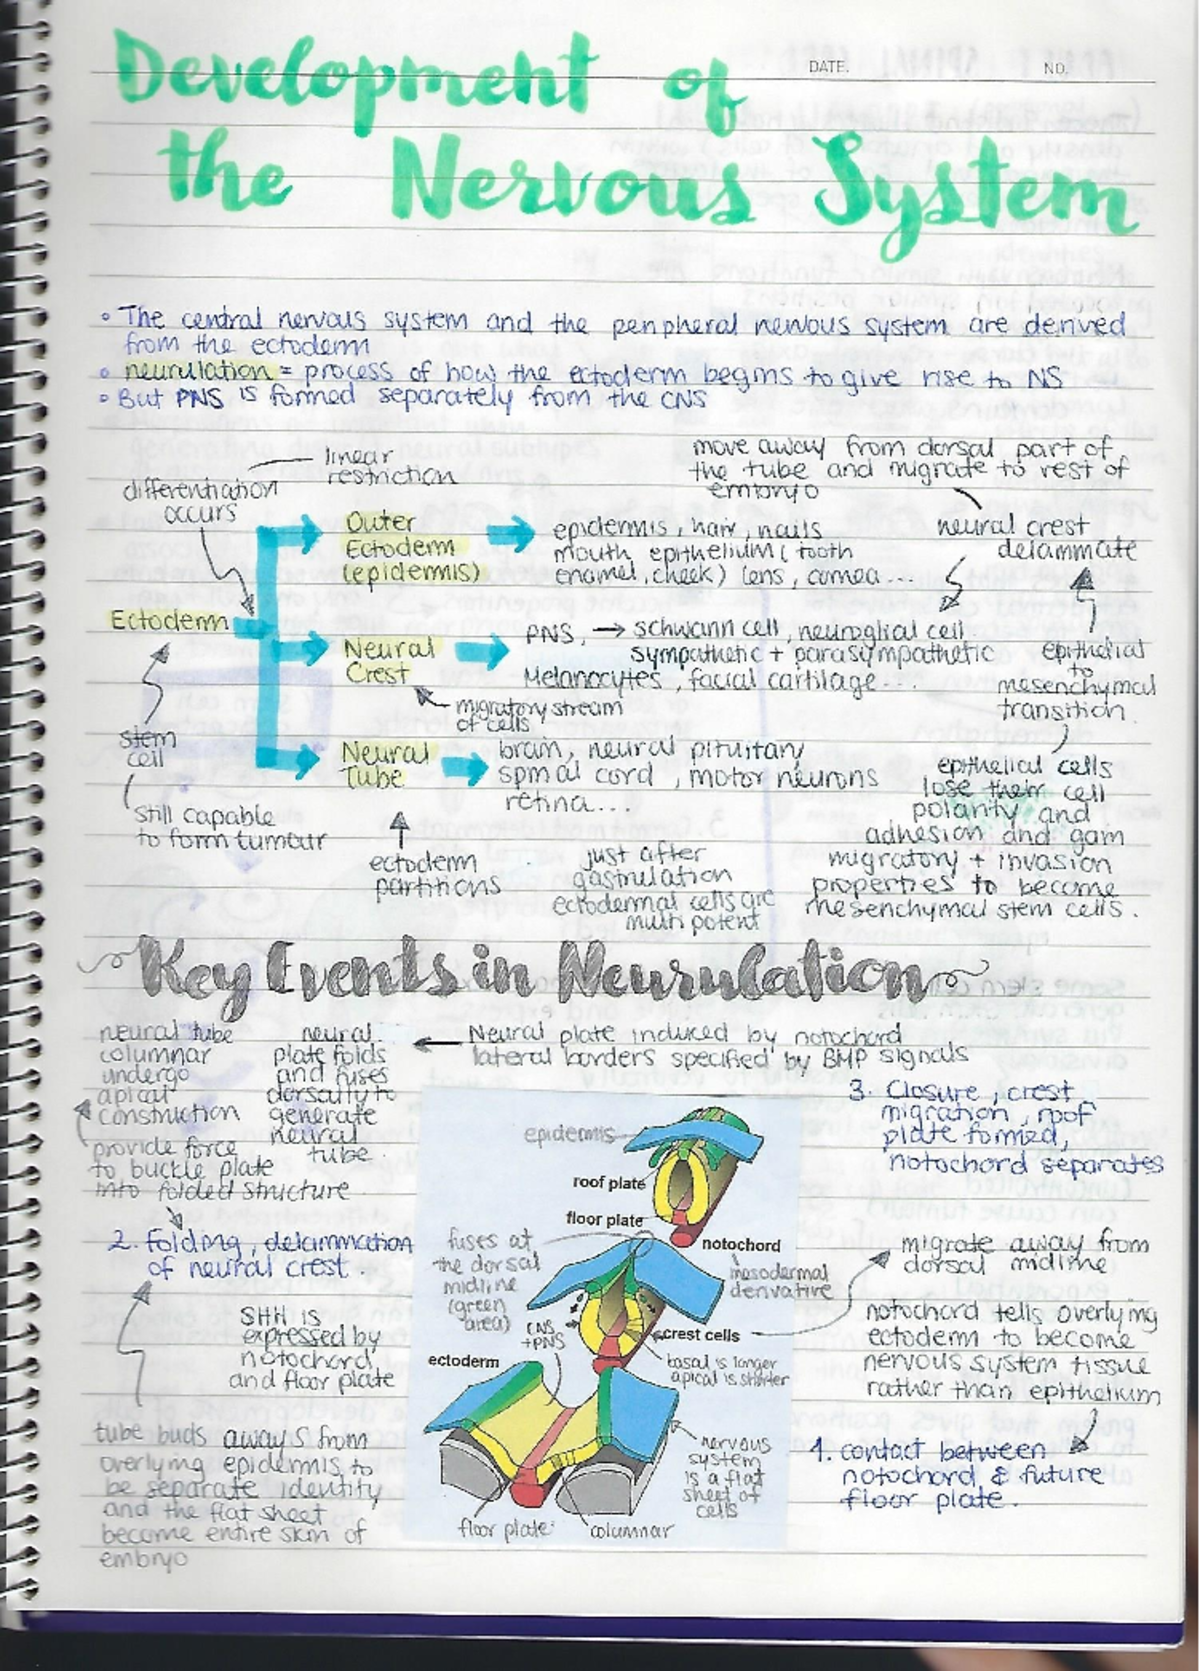 DATE.
NO.
Development of
the Nervous System
• The central nervous system and the peripheral nervous system are derived
from the ectoderm
• neurulation = process of how the ectoderm begins to give rise to NS
• But PNS is formed separately from the CNS
linear
restriction
differentiation
occurs
move away from dorsal part of
the tube and migrate to rest of
embryo
neural crest
delammate
Outer
Ectoderm
(epidermis)
epidermis, hair, nails
mouth epithelium (tooth
enamel, cheek) lens, cornea...
Ectoderm
Neural
Crest
PNS, → schwann cell, neuroglial cell
sympathetic + parasympathetic
Melanocytes, facial cartilage...
migratory stream
of cells
epithelial
to
mesenchymal
transition
stem
cell
Still capable
to form tumour
Neural
Tube
brain, neural pituitary
spinal cord, motor neurons
retina...
ectoderm
partitions
just after
gastrulation
ectodermal cells are
multi potent
epithelial cells
lose their cell
polarity and
adhesion and gain
migratory + invasion
properties to become
mesenchymal stem cells.
Key Events in Neurulation
neural tube
columnar
undergo
apical
construction
provide force
to buckle plate
into folded structure
neural
plate folds
and fuses
dorsally to
generate
neural
tube.
Neural plate induced by notochord
lateral borders specified by BMP signals
3. Closure, crest
migration, roof
plate formed,
notochord separates
2. folding, delammation
of neural crest.
SHH is
expressed by
notochord,
and floor plate
tube buds aways from
overlying epidermis to
be separate identity
and the flat sheet
become entire skin of
embryo
epidermis
roof plate
floor plate
notochord
mesodermal
derivative
fuses at
the dorsal
midline
(green
area)
CNS
+PNS
crest cells
basal is longer
apical is shorter
ectoderm
nervous
system
is a flat
sheet of
cells
floor plate
columnar
migrate away from
dorsal midline
notochord tells overlying
ectoderm to become
nervous system tissue
rather than epithelium
1. contact between
notochord & future
floor plate.